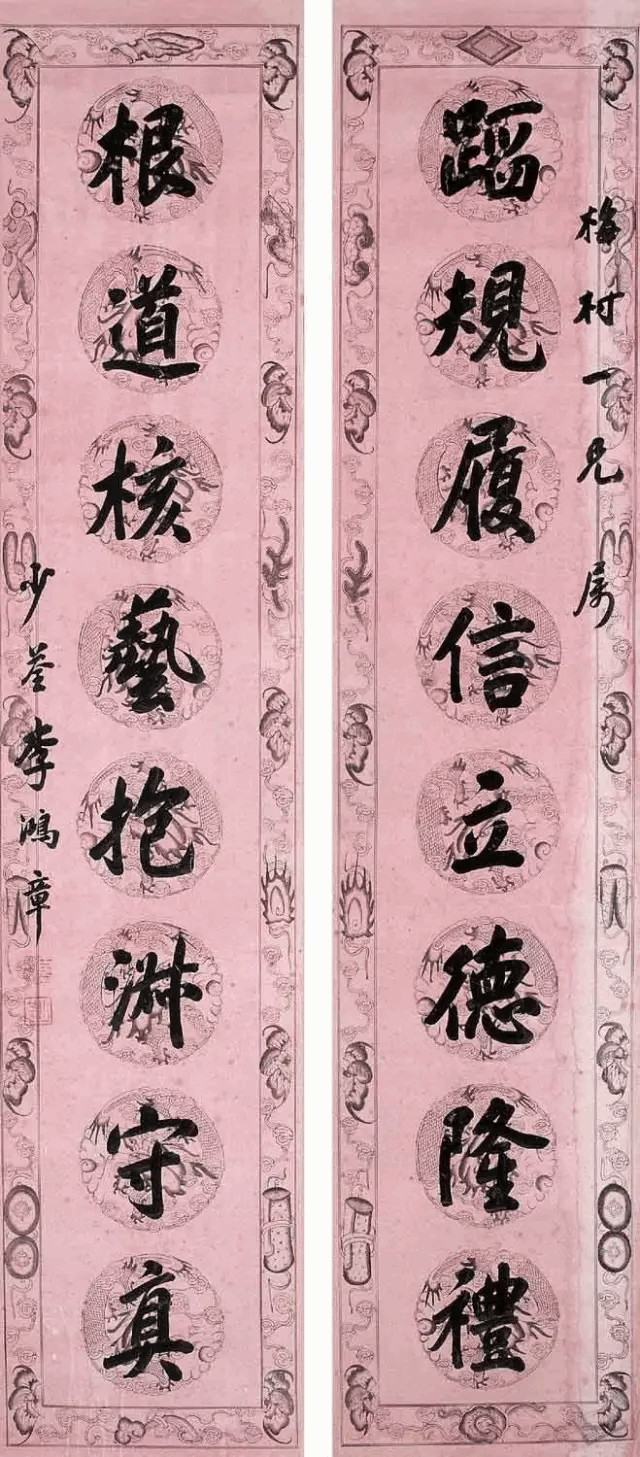 梅村一兄属
蹈規履信立德隆禮
根道核藝抱淵守真
少荃李鴻章